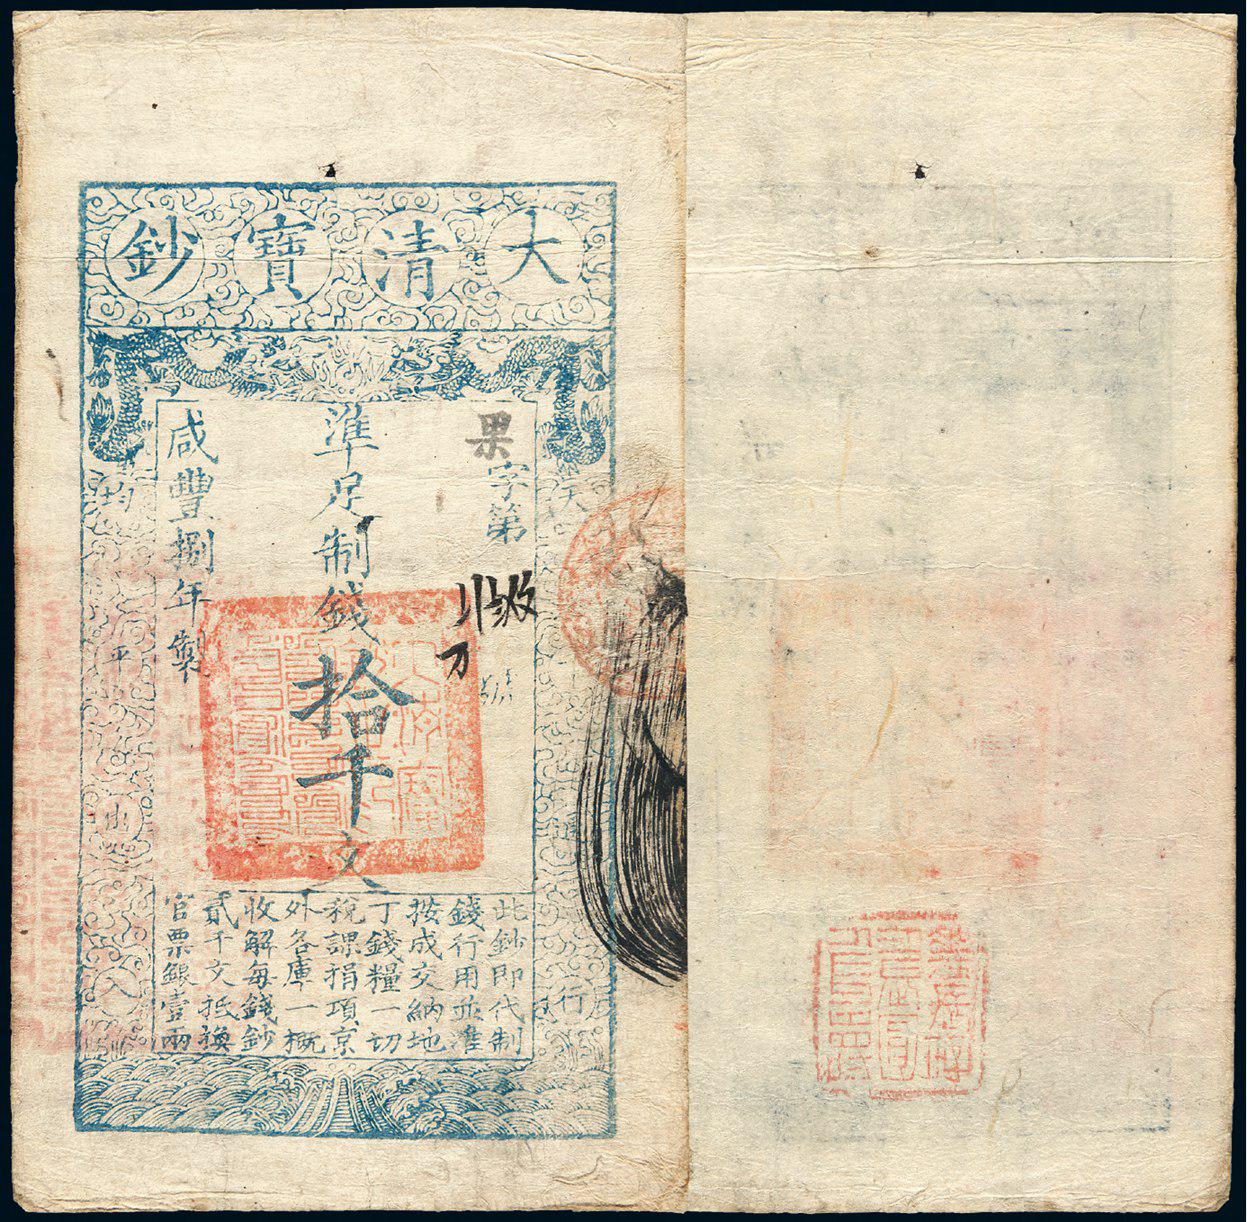 大清寶鈔
果字第
準足制錢拾千文
咸豐捌年製
天
下
平
出
入
行
此鈔即代制
錢行用並準
按成交納地
丁錢糧一切
稅課捐項京
外各庫一概
收解每錢鈔
貳千文抵換
官票銀壹兩